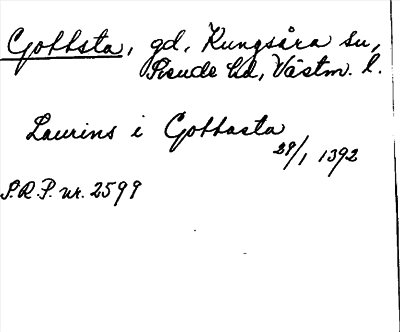 Gottsta, gd, Kungsåra sn,
Siende hd, Västm. l.
Laurins i Gottasta
29/1 1392
S.R.P. nr. 2599